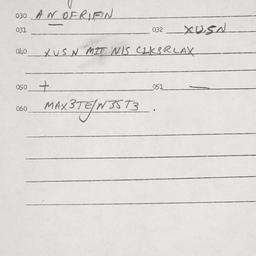 030 AN OFRIFIN
031 032 XUSN
040 XUSN MIT NIS C2KSRLAX
050 + 051 —
060 MAX3TE/N35T3 .